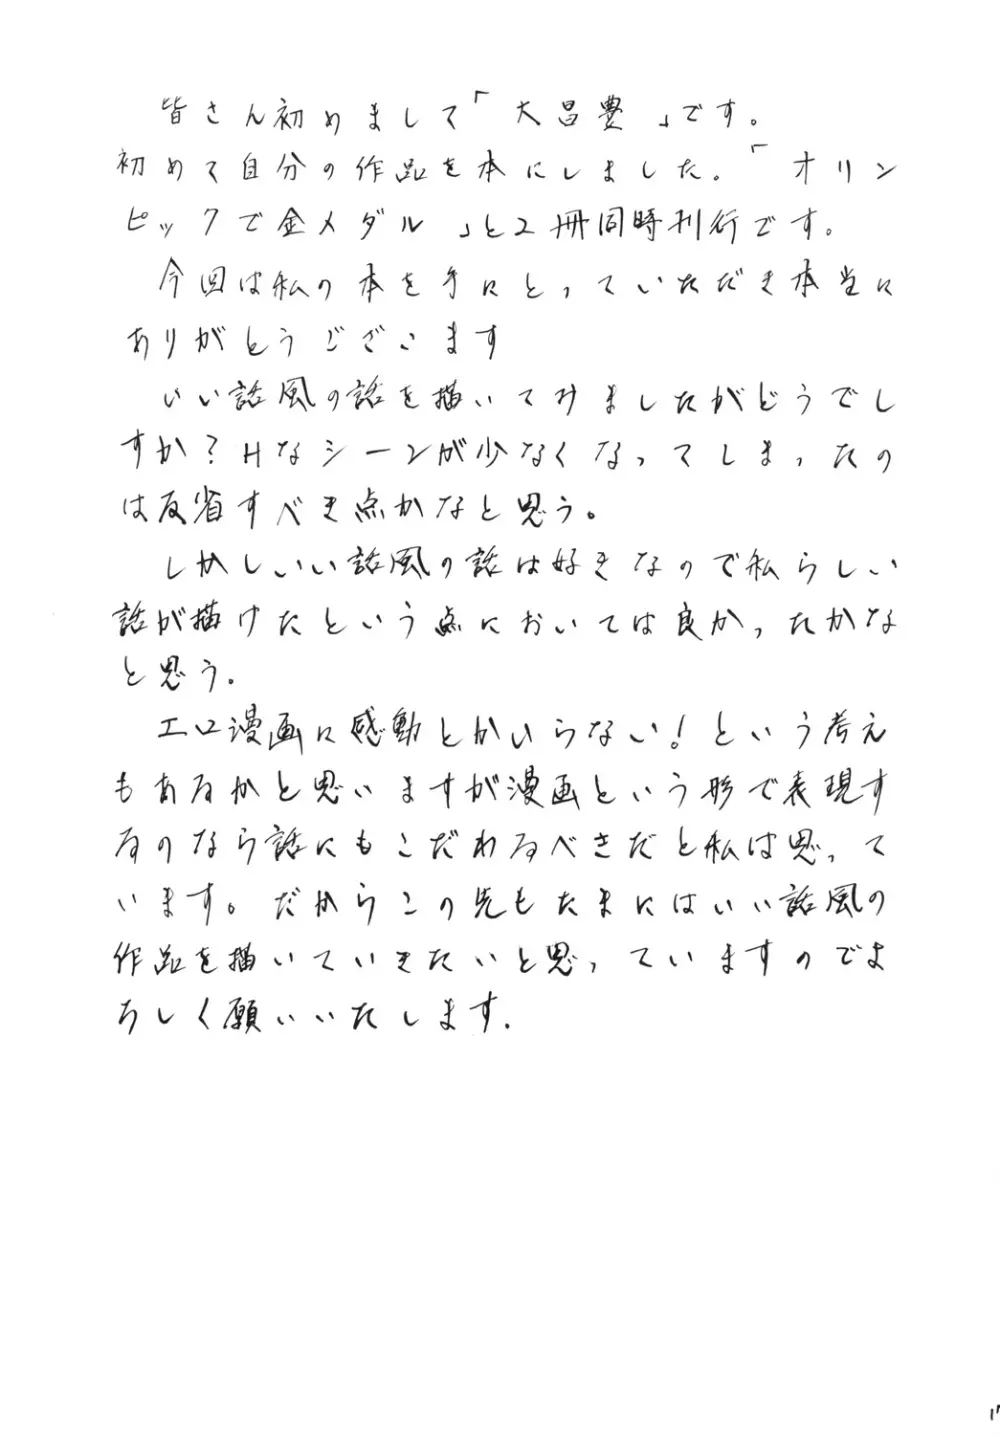 皆さん初めまして「大昌豊」です。
初めて自分の作品を本にしました。「オリン
ピックで金メダル」と2冊同時刊行です。
今回は私の本を手にとっていただき本当に
ありがとうございます
いい話風の話を描いてみましたがどうでし
すか?Hなシーンが少なくなってしまったの
は反省すべき点かなと思う。
しかしいい話風の話は好きなので私らしい
話が描けたという点においては良かったかな
と思う.
エロ漫画に感動とかいらない!という考え
もあるかと思いますが漫画という形で表現す
るのなら話にもこだわるべきだと私は思って
います。だからこの先もたまにはいい話風の
作品を描いていきたいと思っていますのでよ
ろしく願いいたします.